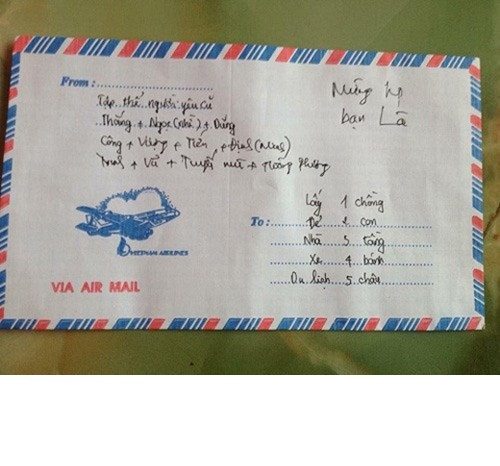 From:
Mừng hp
bạn Lã
Tập thể người yêu cũ
Thắng + Ngọc (nhì) + Dũng
Công + Vượng + Tiến + Định
+ Vũ + Tuyết + Hoàng Phương
Lấy 1 chồng
To: Đẻ 2 con
Nhà 3 tầng
Xe 4 bánh
Du lịch 5 châu
VIETNAM AIRLINES
VIA AIR MAIL